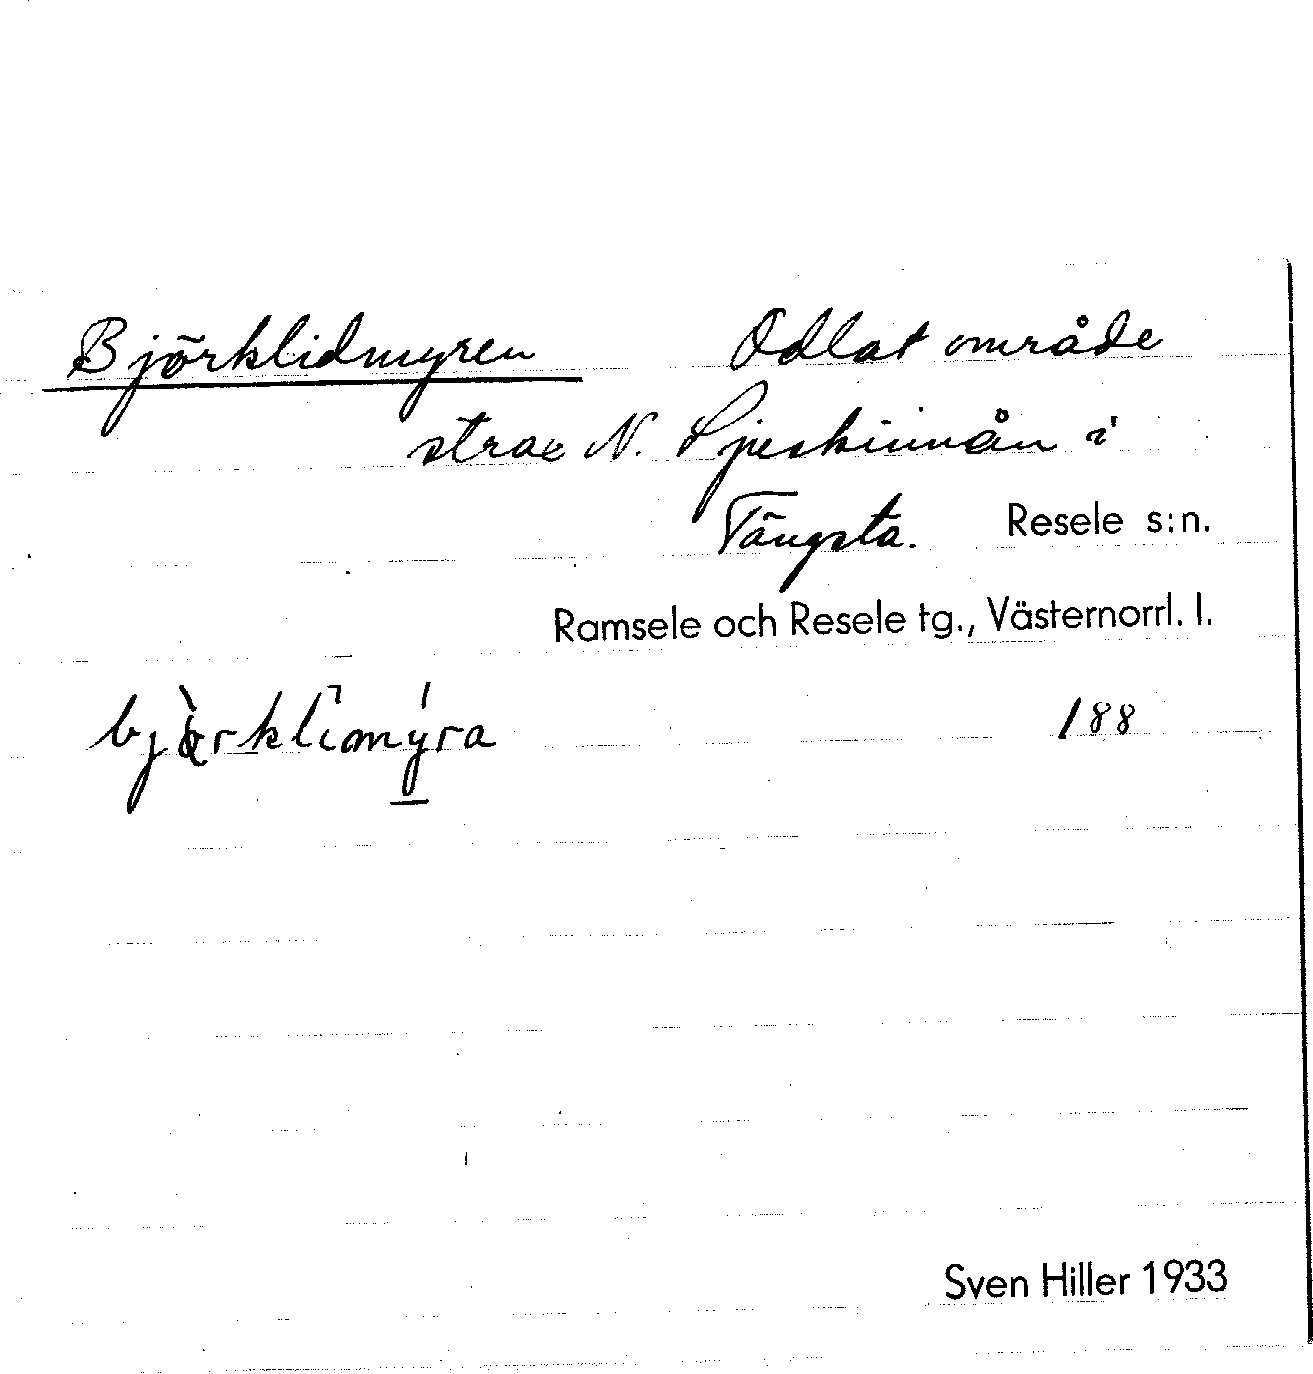 Björklidmyren Odlat område
strax N. Ljeskinnån i
Tängsta. Resele s:n.
Ramsele och Resele tg., Västernorrl. l.
188
Sven Hiller 1933